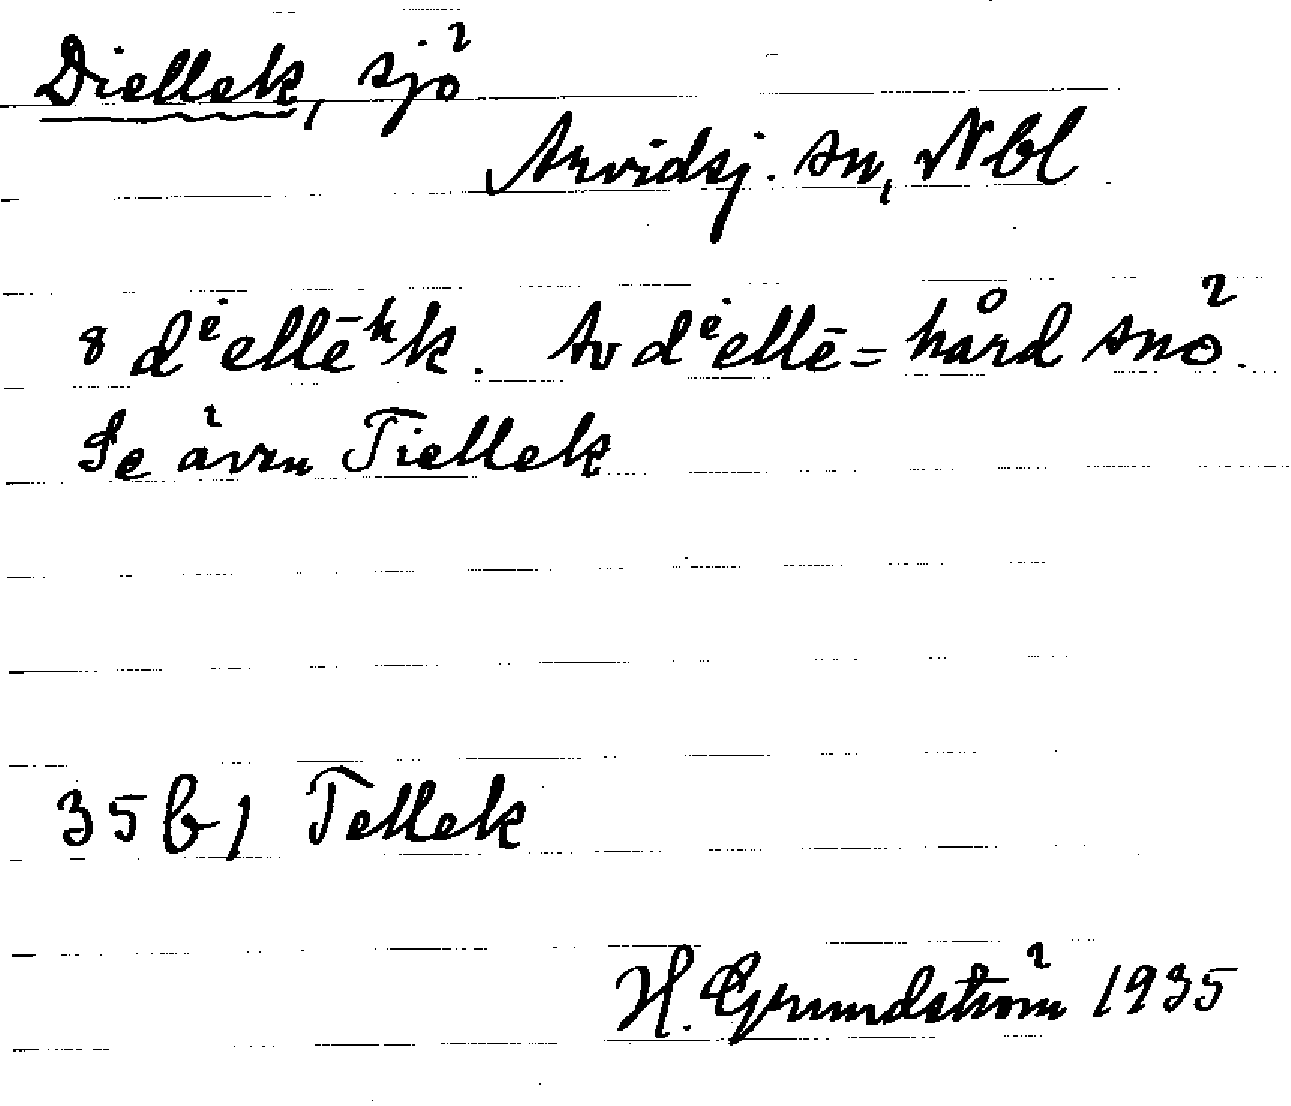 Diellek, sjö
Arvidsj. sn, Nbl
8 dⁱellē̄ʰk. Av dⁱellē = hård snö.
Se även Tiellek
35 b) Tellek
H. Grundström 1935